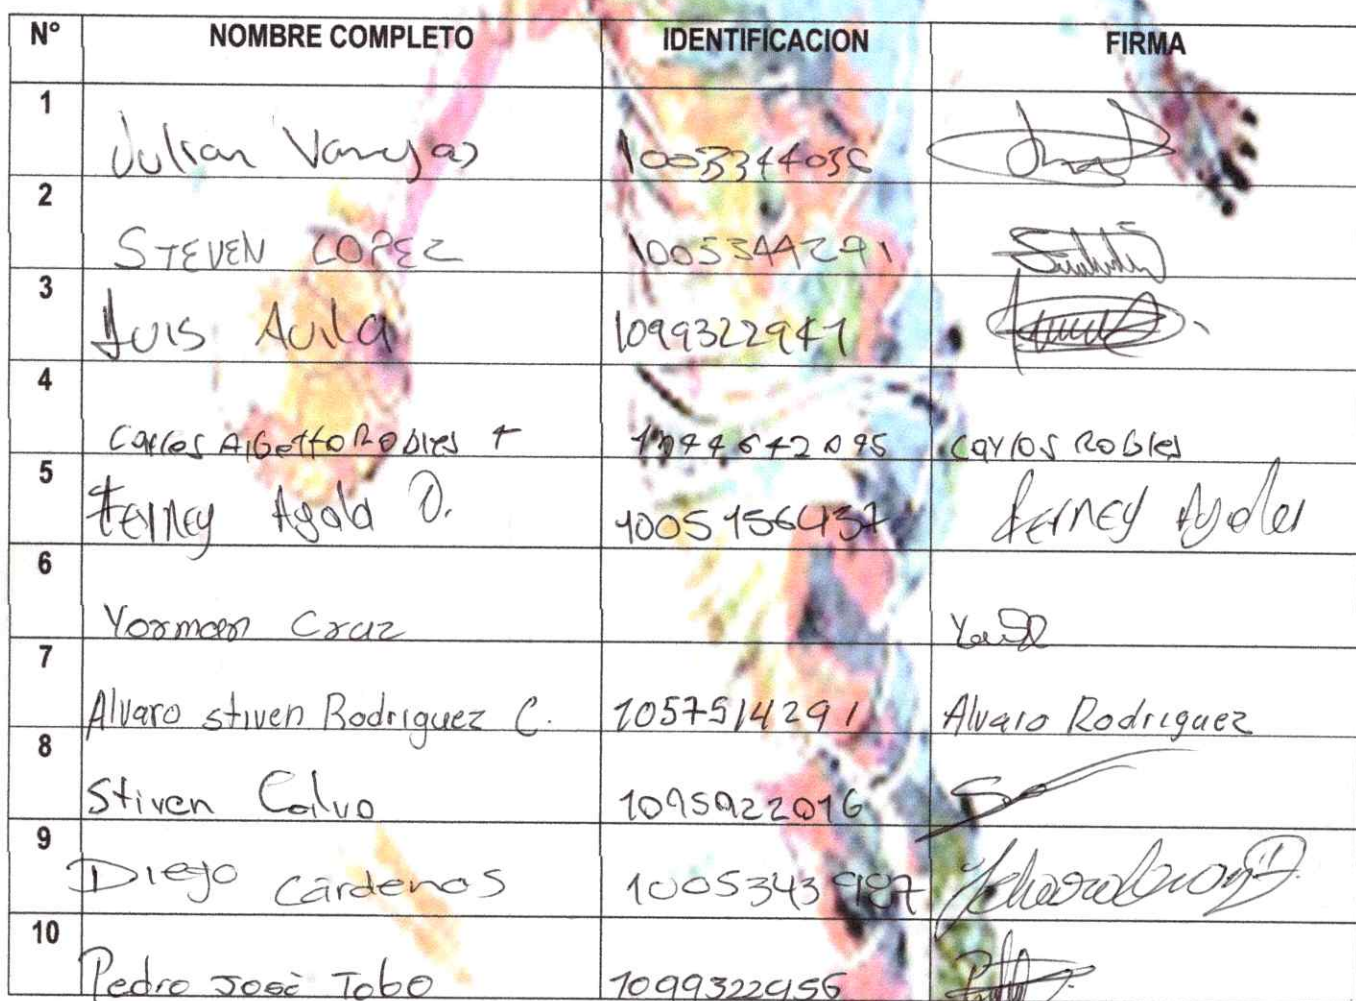 N° NOMBRE COMPLETO IDENTIFICACION FIRMA
1 Julian Vanegas
2 STEVEN LOPEZ 1005344291
3 Luis Avila 1099322941
4 Carlos Alberto Robles Carlos Robles
5 Ferney Ayala D. 1005156437 Ferney Ayala
6 Yorman Cruz
7 Alvaro stiven Rodriguez C. 1057514291 Alvaro Rodriguez
8 Stiven Calvo 1095922016
9 Diego Cárdenas 1005343987
10 Pedro José Tobo 1099322956